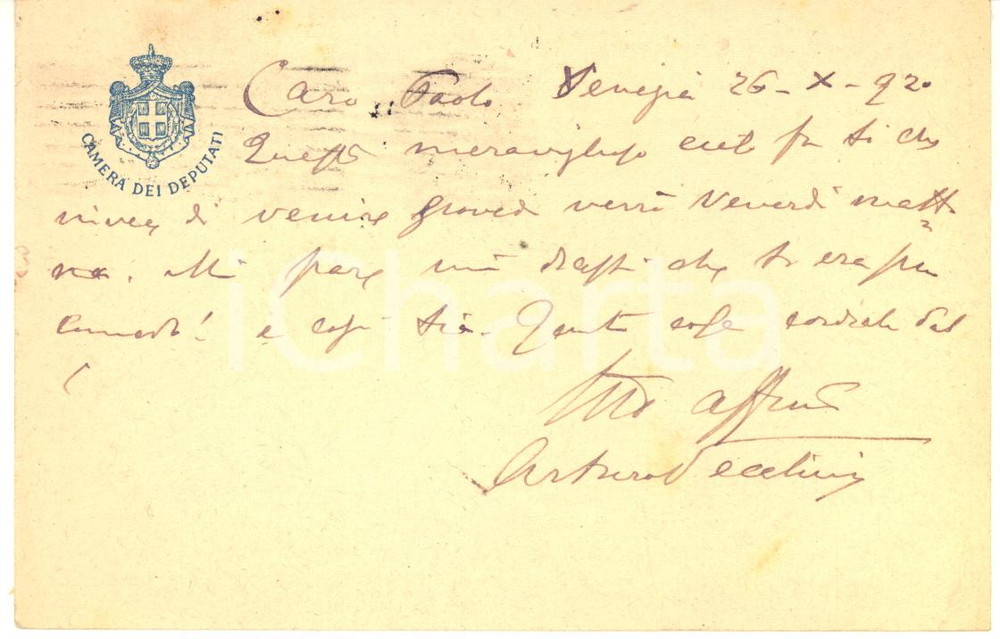 CAMERA DEI DEPUTATI
Caro Paolo Venezia 26-X-920
Questo fa sì che
invece di venire giovedì verrò Venerdì matti
na. Mi pare mi dicesti che ti era più
comodo! e così sia. Tante cose cordiali dal
tuo affmo
Arturo Vecchini
iCharta